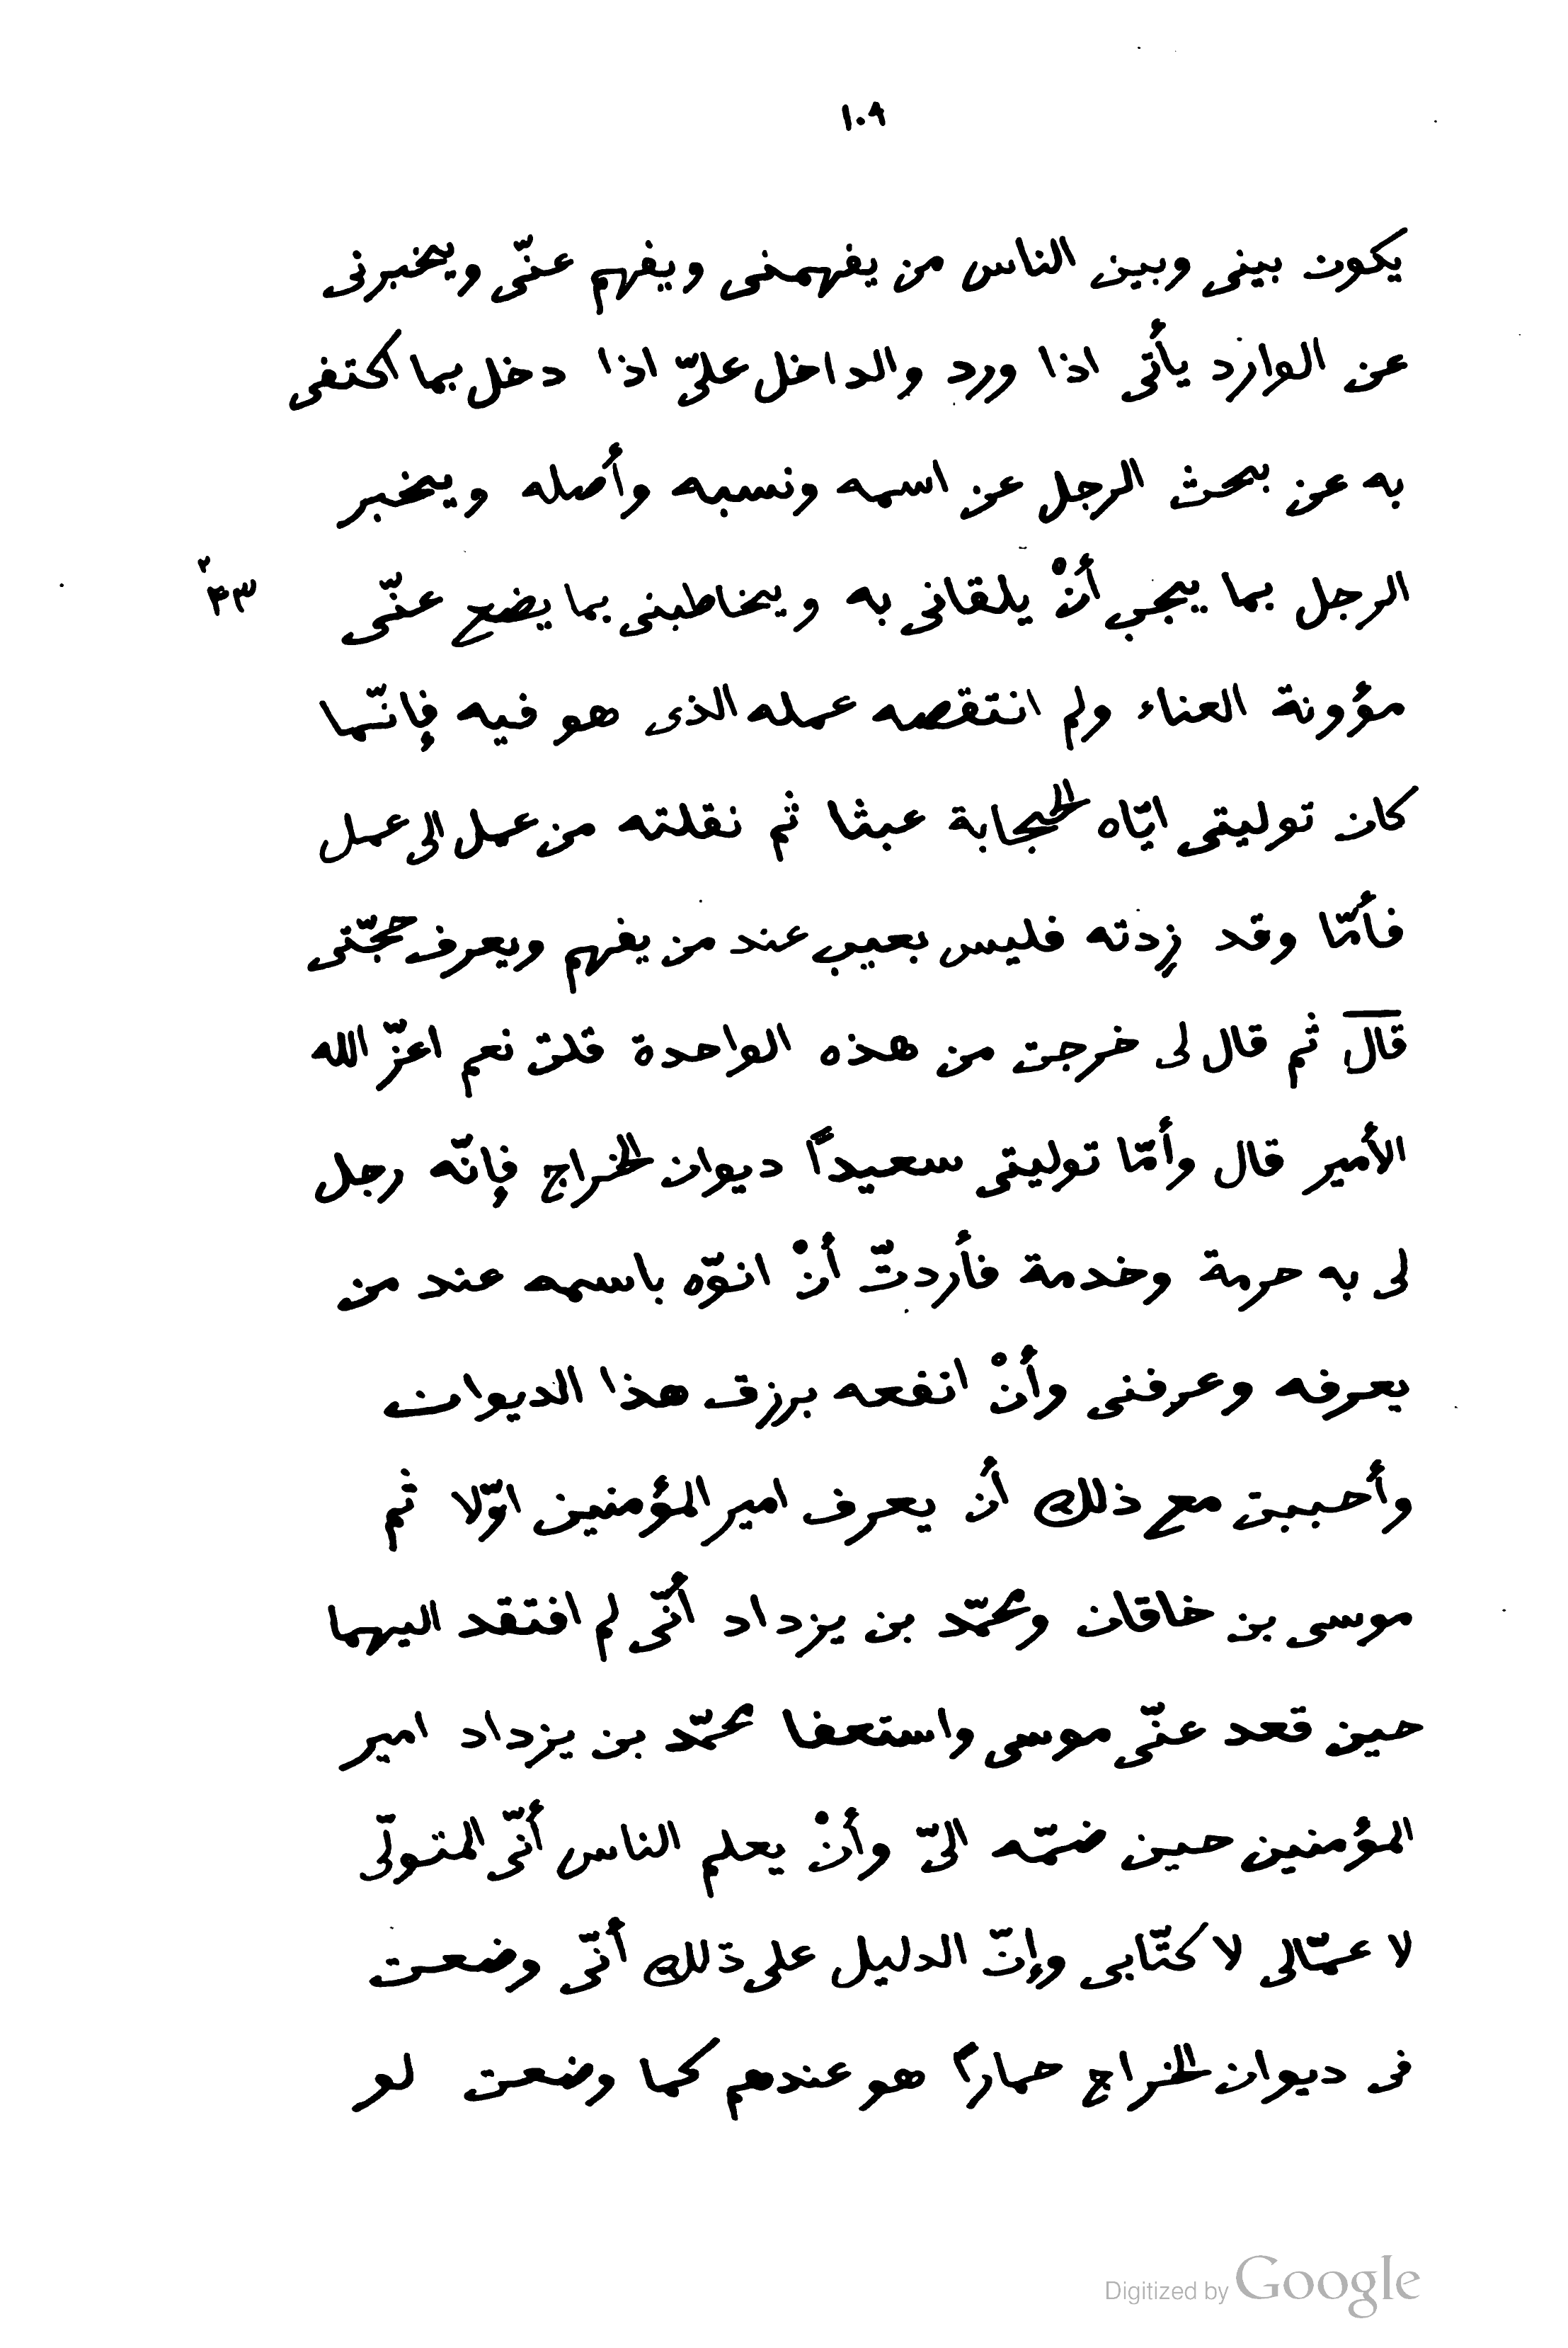 ١٠٩
يكون بينى وبين الناس من يفهمنى ويفهم عنّى ويخبرنى
عن الوارد يأتى اذا ورد والداخل علىّ اذا دخل بما اكتفى
به عن بحث الرجل عن اسمه ونسبه وأصله ويخبر
الرجل بما يجب أنْ يلقانى به ويخاطبنى بما يضع عنّى
مؤونة العناء ولم انتقصه عمله الذى هو فيه فإنّما
كان توليتى ايّاه الحجابة عبثا ثم نقلته من عمل الى عمل
فأمّا وقد زِدته فليس بعيب عند من يفهم ويعرف حجّتى
قال ثم قال لى خرجت من هذه الواحدة قلت نعم اعزّ الله
الأمير قال وأمّا توليتى سعيداً ديوان الخراج فإنّه رجل
لى به حرمة وخدمة فأردتّ أنْ انوّه باسمه عند من
يعرفه وعرفنى وأنْ انفعه برزق هذا الديوان
وأحببت مع ذلك أن يعرف امير المؤمنين اوّلا ثم
موسى بن خاقان ومحمّد بن يزداد أنّى لم افتقد اليهما
حين قعد عنّى موسى واستعفا محمّد بن يزداد امير
المؤمنين حين ضمّه الىّ وأنْ يعلم الناس أنّى المتولّى
لا عمّالى لا كتّابى وإنّ الدليل على ذلك أنّى وضعت
فى ديوان الخراج حماراً هو عندهم كما وضعت لو
Digitized by Google